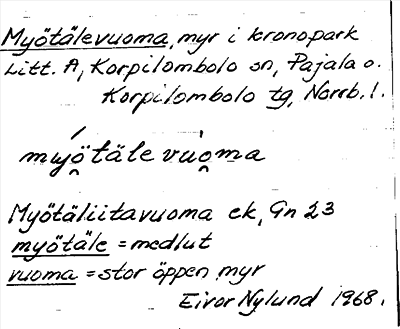 Myötälevuoma, myr i kronopark
Litt. A, Korpilombolo sn, Pajala o.
Korpilombolo tg, Norrb. l.
myötäle vuoma
Myötäliitavuoma ek, Gn 23
myötäle = medlut
vuoma = stor öppen myr
Eivor Nylund 1968.